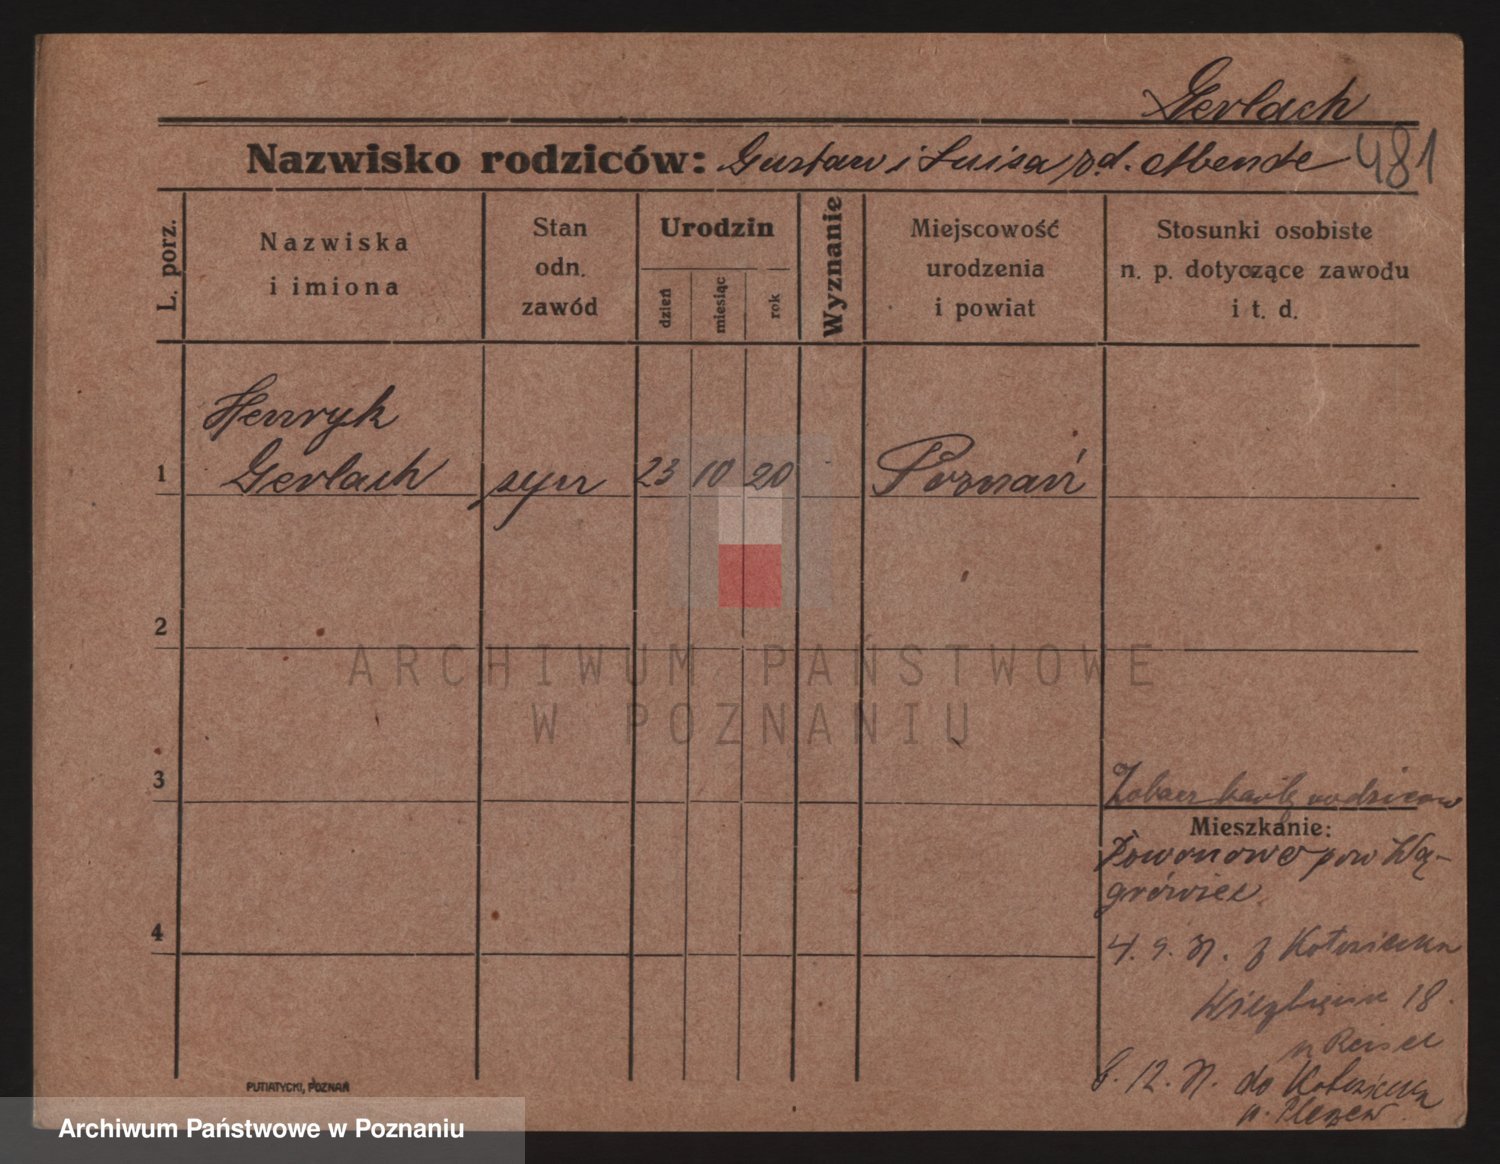 Gerlach
Nazwisko rodziców: Gustaw i Luisa rod. Abende 481
L. porz.
Nazwiska
i imiona
Stan
odn.
zawód
Urodzin
dzień
miesiąc
rok
Wyznanie
Miejscowość
urodzenia
i powiat
Stosunki osobiste
n. p. dotyczące zawodu
i t. d.
Henryk
1 Gerlach syn 23 10 20 Poznań
2
ARCHIWUM PAŃSTWOWE
W POZNANIU
3
Zobacz kartę rodziców
Mieszkanie:
pow Wą-
grówiec
4
4. 9. z
18.
12. do
p. Pleszew.
PUTIATYCKI, POZNAŃ
Archiwum Państwowe w Poznaniu